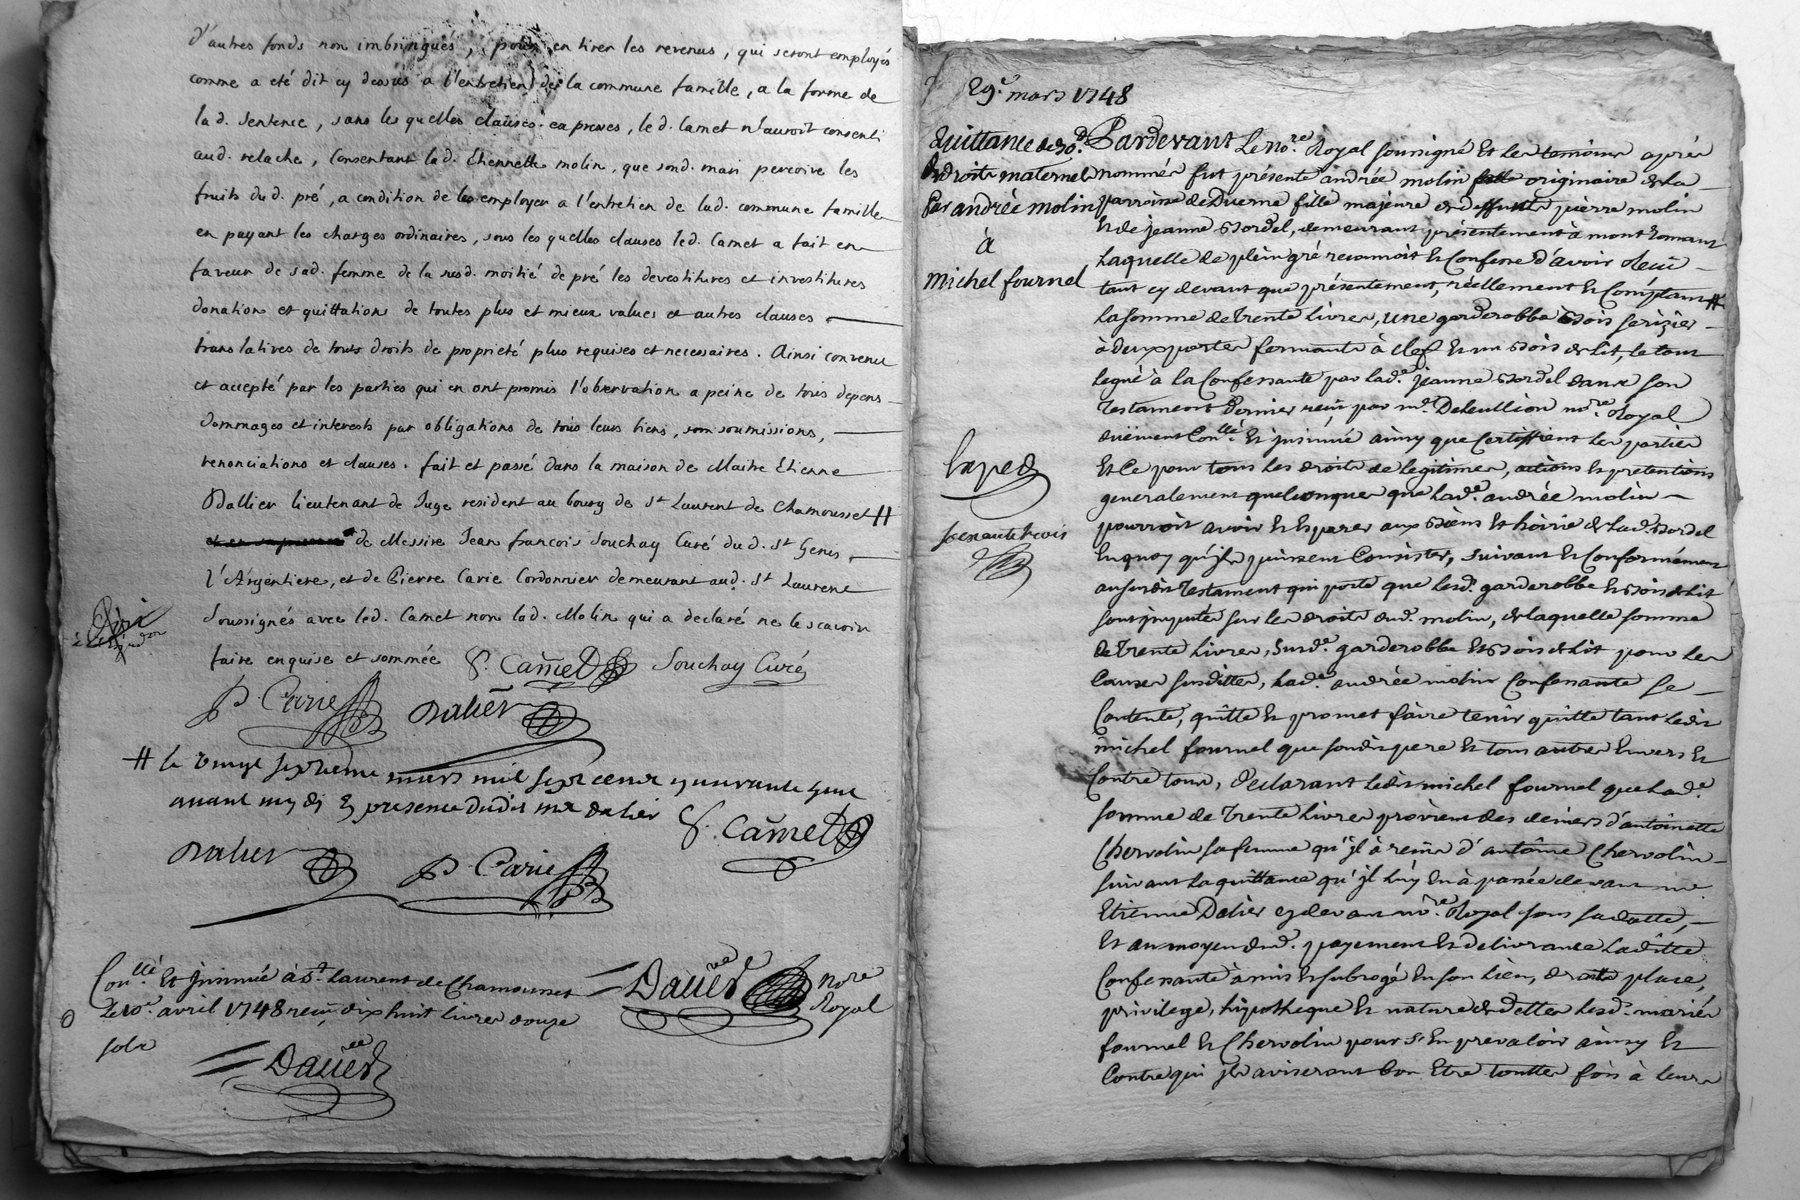 d'autres fonds non imbringués, pour en tirer les revenus, qui seront employés
comme a eté dit cy dessus a l'entretien de la commune famille, a la forme de
lad. sentence, sans les quelles clauses expresses, led. Camet n'auroit consenti
aud. relache, Consentant lad. Etiennette molin, que sond. mari percoive les
fruits dud. pré, a condition de les employer a l'entretien de lad. commune famille
en payant les charges ordinaires, sous les quelles clauses led. Camet a fait en
faveur de sad. femme de la susd. moitié de pré les devestitures et investitures
donations et quittations de toutes plus et mieux values et autres clauses
translatives de touts droits de proprieté plus requises et necessaires. Ainsi convenu
et accepté par les parties qui en ont promis l'observation a peine de touts depens
dommages et interests par obligations de touts leurs biens, soumissions,
renonciations et clauses. fait et passé dans la maison de Maitre Etienne
Dallier lieutenant de Juge resident au bourg de St Laurent de Chamousset #
de Messire Jean francois Souchay Curé dud. St Genis
l'Argentiere, et de Pierre Carie Cordonnier demeurant aud. St Laurent
Soussignés avec led. Camet non lad. Molin qui a declaré ne le scavoir
faire enquise et sommée
Camet Souchay Curé
P. Carie Dalier
# le vingt septieme mars mil sept cent quarante huit
avant mydi en presence dudit me dalier
Camet
Dalier P. Carie
Conllé Et jnsinué à St Laurent de Chamousset
Le 10e avril 1748 reçu dix huit livres douze
sols
Dauer
Dauer nore
Royal
29e mars 1748
Quittance de 30tt
Droits maternels
Par andrée molin
à
michel fournel
Pardevant Le nore Royal soussigné Et les temoins aprés
nommés fut présente andrée molin originaire de La
parroisse de Duerne fille majeure de deffunts pierre molin
Et de jeanne Bordel, demeurant présentement à mont Romant
Laquelle de plein gré reconnoit Et Confesse d'avoir Reçu
tant cy devant que présentement, réellement Et Comptant #
La somme de trente Livres, une garderobbe Bois serizier
à deux portes fermante à clef Et un Bois de Lit, le tout
legué à la Confessante par lade jeanne Bordel dans son
testament dernier reçu par me Deleullion nore Royal
duëment Conllé Et jnsinué ainsy que Certiffient les parties
Et Ce pour tous les droits de legitimes, actions Et pretentions
generalement quelconques que lade andrée molin
pourroit avoir Et Esperer aux Biens Et hoirie de Lad. Bordel
En quoy qu'jls puissent Consister, suivant Et Conformément
au susdit testament qui porte que lesd. garderobbe Et bois de Lit
sont jmputés sur les droits de lad. molin, de laquelle somme
de trente Livres, susde garderobbe Et Bois de Lit pour les
Causes susdittes, Lade andrée molin Confessante se
Contente, quitte Et promet faire tenir quitte tant Ledit
michel fournel que sondit pere Et tous autres Envers Et
Contre tous, déclarant Ledit michel fournel que Lade
somme de trente Livres provient des deniers d'antoinette
Chervolin sa femme qu'jl à reçu d'antoine Chervolin
suivant La quittance qu'jl luy En à passée devant me
Etienne Dalier cy devant nore Royal sous sa datte,
Et au moyen dud. payement Et delivrance Laditte
Confessante à mis Et subrogé En son Lieu, droit place,
privilege, hipotheque Et nature de dettes Lesd. mariés
fournel Et Chervolin pour s'En prevaloir ainsy Et
Contre qui jls aviseront bon Etre toutte fois à leurs